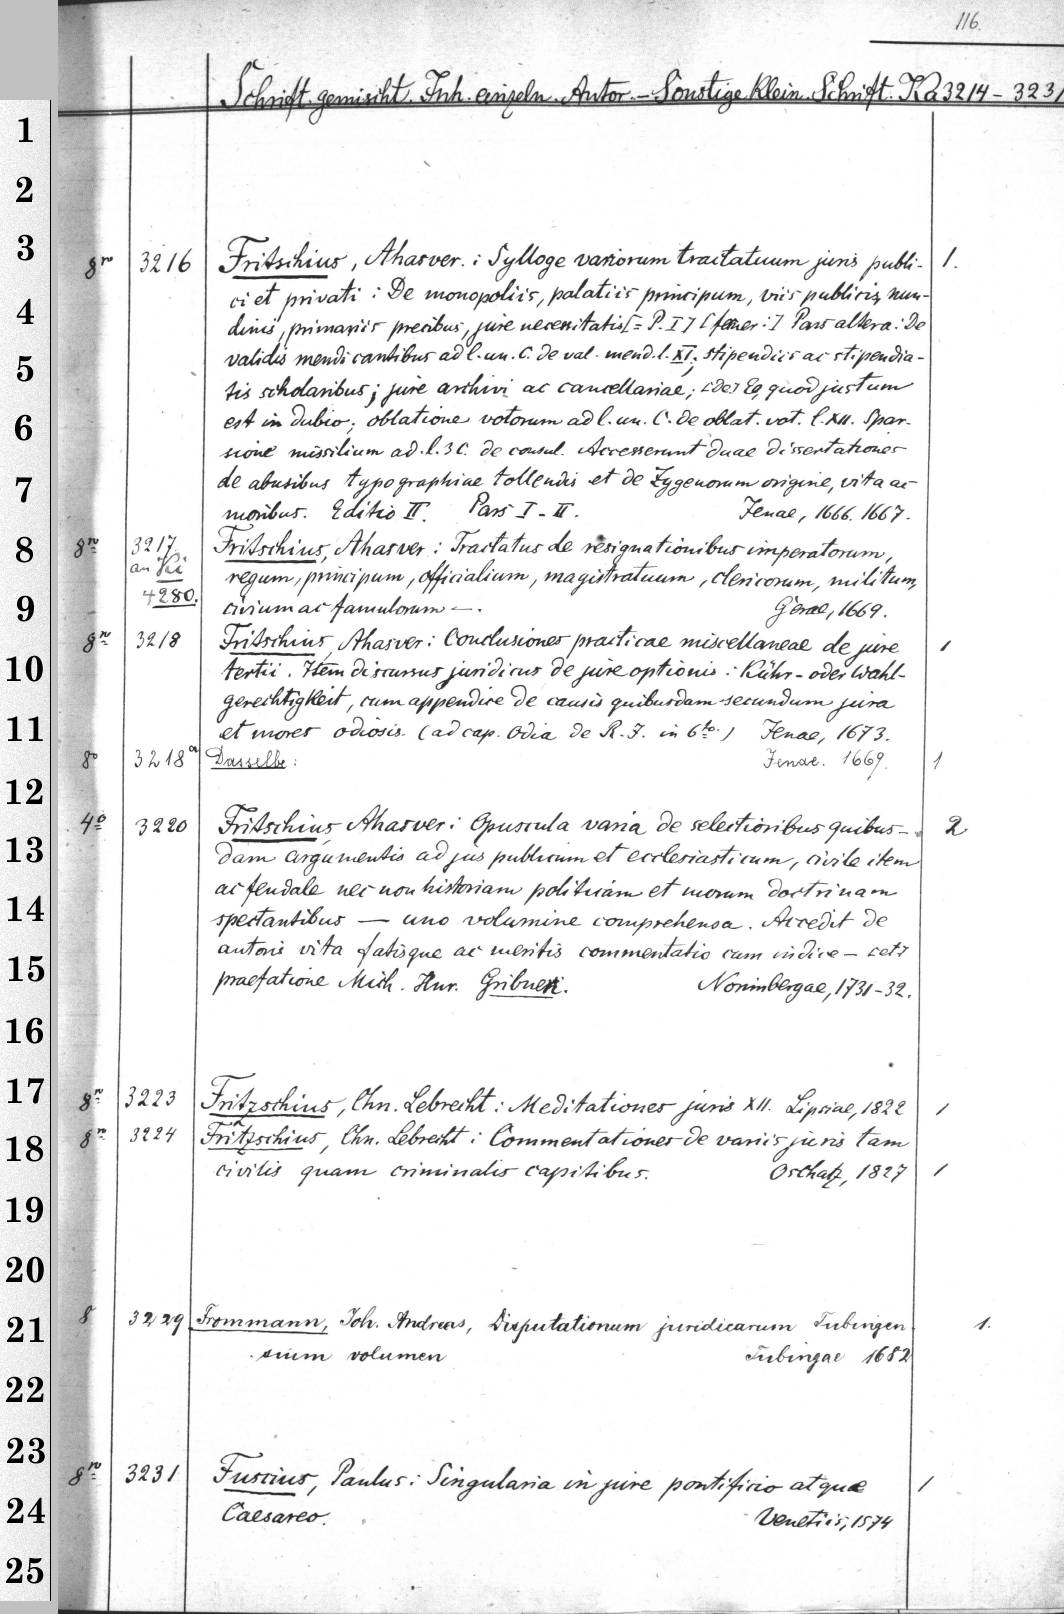 116.
Schrift. gemischt. Inh. einzeln. Autor. – Sonstige Klein. Schrift. Ka 3214 – 3231
1
2
3
8ro 3216 Fritschius, Ahasver. : Sylloge variorum tractatuum juris publi- 1.
ci et privati : De monopoliis, palatiis principum, viis publicis, nun-
4
dinis, primariis precibus, jure necessitatis [= P. I] [ferner:] Pars altera: De
validis mendicantibus ad l. un. C. de val. mend. l. XI; stipendiis ac stipendia-
5
tis scholaribus; jure archivi ac cancellariae; [De] Eo, quod justum
6
est in dubio; oblatione votorum ad l. un. C. de oblat. vot. l. XII. Spar-
sione missilium ad. l. 3 C. de consul. Accesserunt duae dissertationes
7
de abusibus typographiae tollendis et de Zygenorum origine, vita ac
moribus. Editio II. Pars I – II. Jenae, 1666. 1667.
8
8ro 3217 Fritschius, Ahasver : Tractatus de resignationibus imperatorum,
an Ki regum, principum, officialium, magistratuum, clericorum, militum,
9
4280. civium ac famulorum —. Gerae, 1669.
8ro 3218 Fritschius, Ahasver: Conclusiones practicae miscellaneae de jure 1
10
tertii. Item discursus juridicus de jure optionis : Kühr- oder Wahl-
gerechtigkeit, cum appendice de causis quibusdam secundum jura
11
et mores odiosis. (ad cap. Odia de R. J. in 6to.) Jenae, 1673.
8o 3218a Dasselbe: Jenae. 1669. 1
12
4o 3220 Fritschius, Ahasver: Opuscula varia de selectioribus quibus- 2
13
dam argumentis ad jus publicum et ecclesiasticum, civile item
ac feudale nec non historiam politicam et morum doctrinam
14
spectantibus — uno volumine comprehensa. Accedit de
autoris vita fatisque ac meritis commentatio cum indice – cet.
15
praefatione Mich. Henr. Gribneri. Norimbergae, 1731-32.
16
17
8ro 3223 Fritzschius, Chn. Lebrecht : Meditationes juris XII. Lipsiae, 1822 1
8ro 3224 Fritzschius, Chn. Lebrecht : Commentationes de variis juris tam
18
civilis quam criminalis capitibus. Oschatz, 1827 1
19
20
21
8 3229 Frommann, Joh. Andreas, Disputationum juridicarum Tubingen 1.
sium volumen Tubingae 1682
22
23
8ro 3231 Fuscius, Paulus : Singularia in jure pontificio atque 1
24
Caesareo. Venetiis, 1574
25